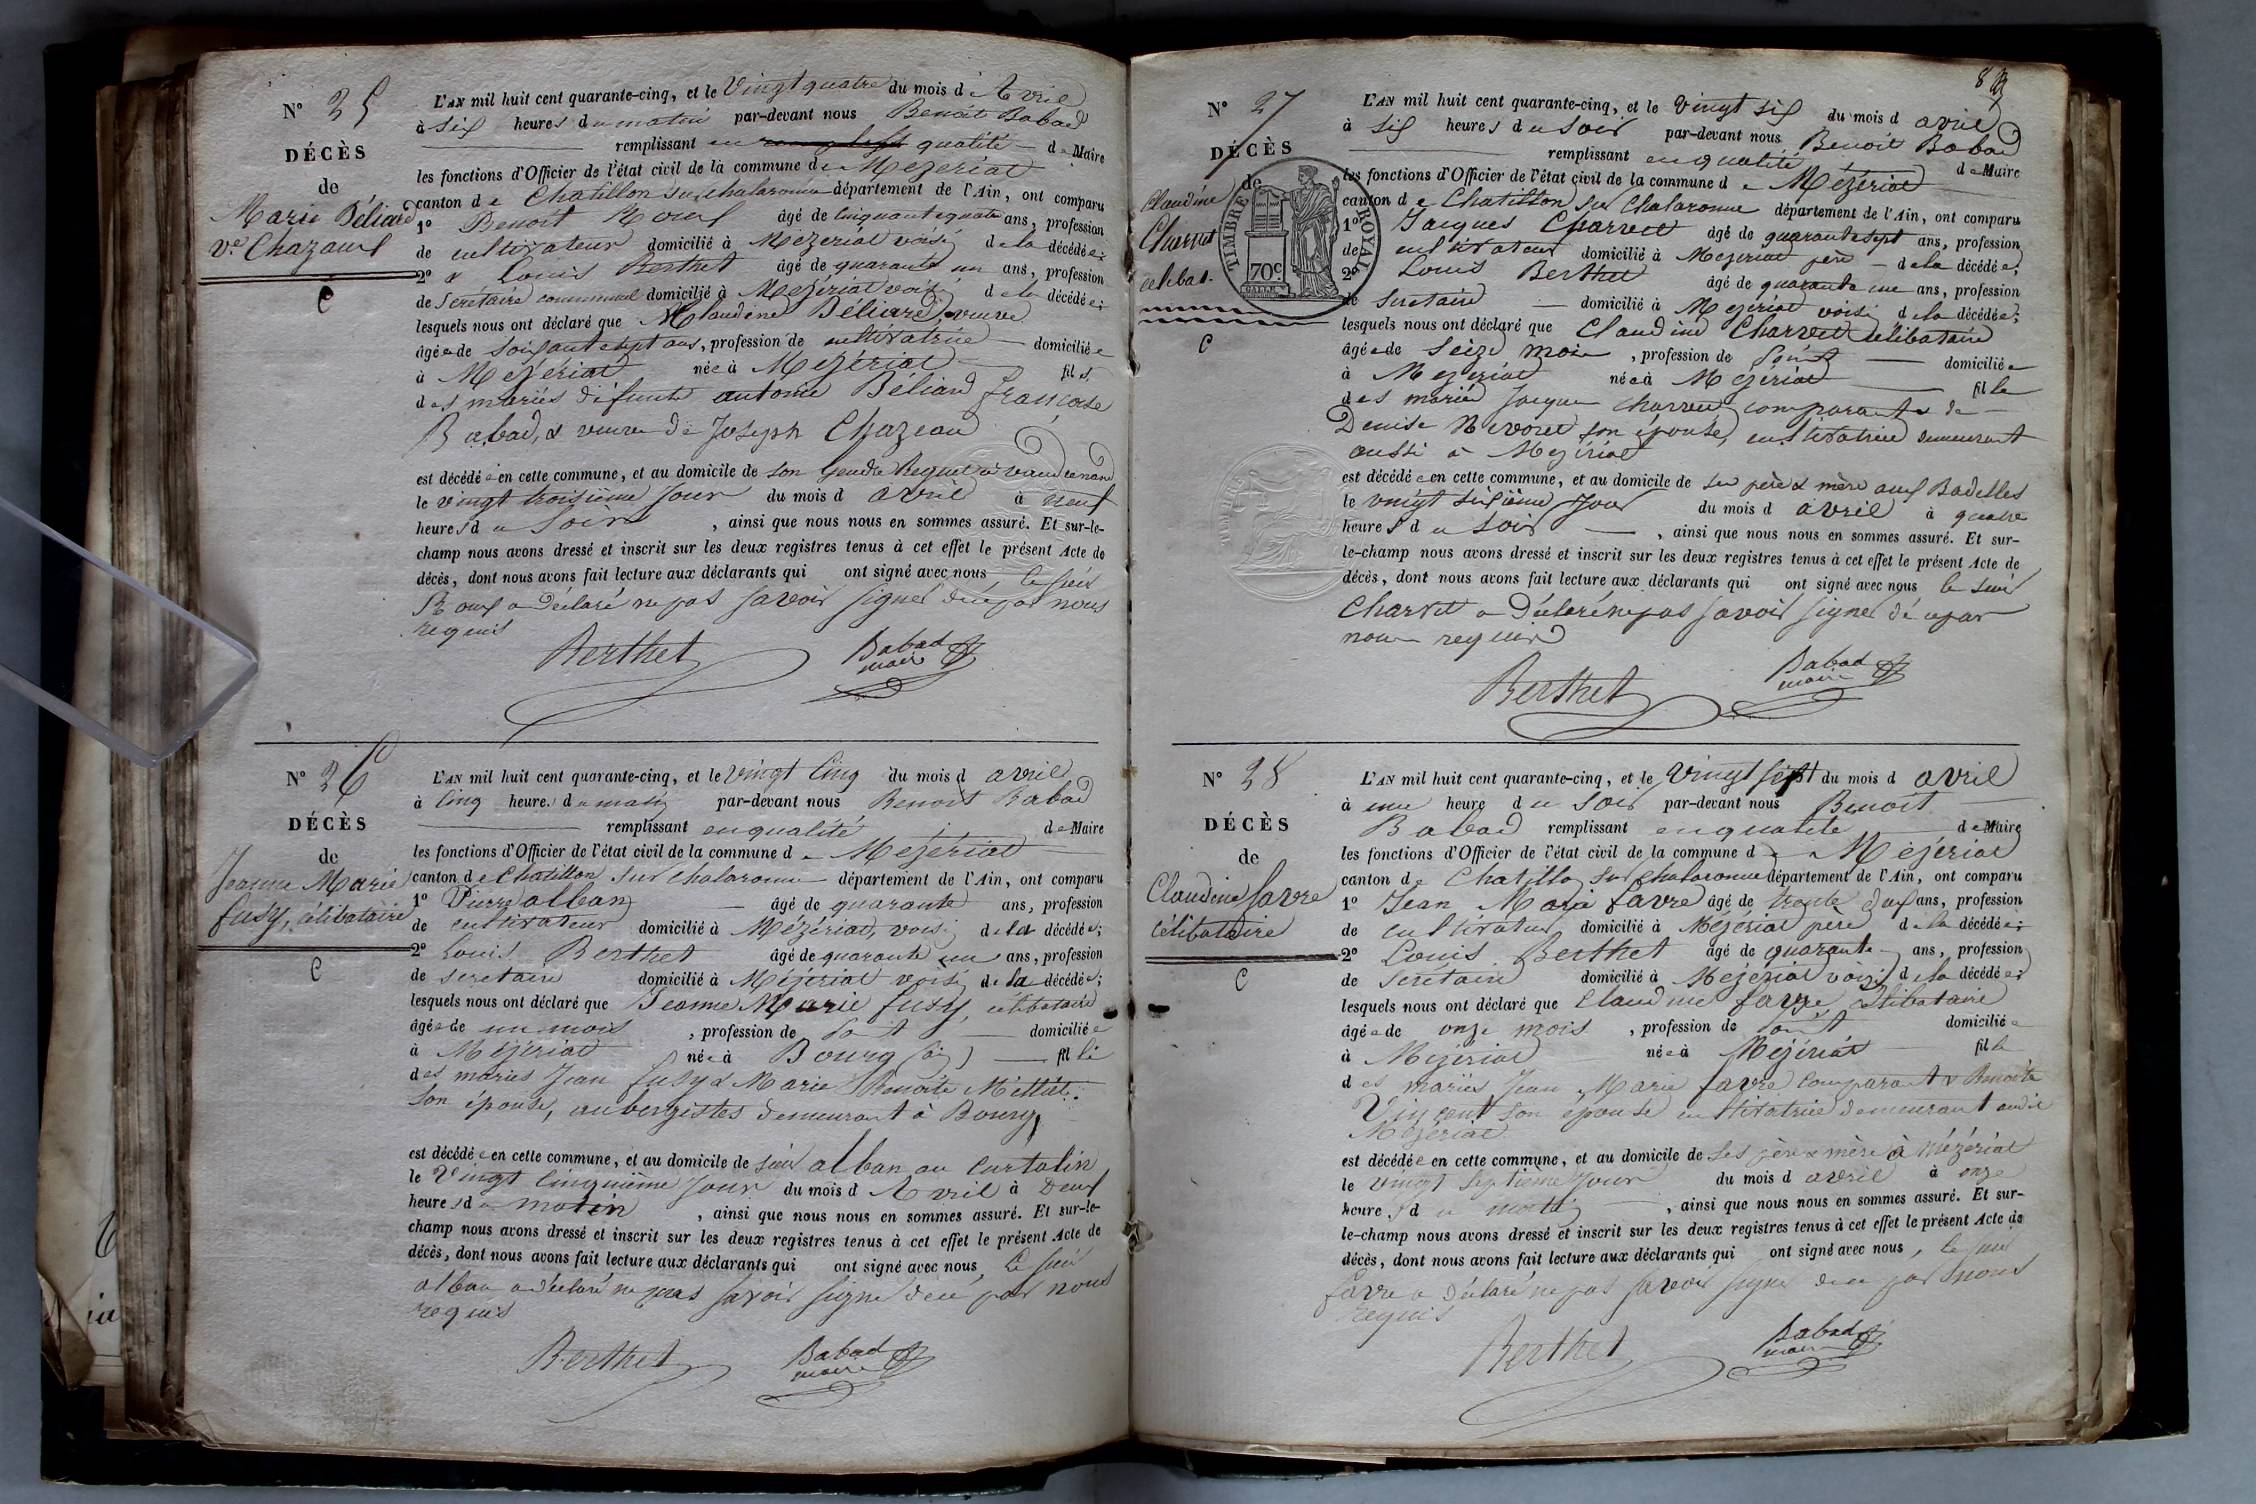 N° 25
DÉCÈS
de
Marie Béliard
Ve Chazaux
C
L'AN mil huit cent quarante-cinq, et le Vingt quatre du mois d'Avril
à six heures du matin par-devant nous Benoit Babad
remplissant en qualité de Maire
les fonctions d'Officier de l'état civil de la commune de Mezeriat
canton de Chatillon sur chalaronne département de l'Ain, ont comparu
1° Benoit Roux âgé de Cinquante quatre ans, profession
de cultivateur domicilié à Mézériat voisin de la décédée;
2° & Louis Berthet âgé de quarante un ans, profession
de Secrétaire communal domicilié à Mezériat voisin de la décédée;
lesquels nous ont déclaré que Claudine Béliard, veuve
âgée de soixante sept ans, profession de cultivatrice domiciliée
à Mezériat née à Mezériat fil
des mariés défunts antoine Béliard françoise
Babad, & veuve de Joseph Chazeau
est décédée en cette commune, et au domicile de son Gendre Reguet à
le vingt troisième jour du mois d avril à neuf
heures du Soir, ainsi que nous nous en sommes assuré. Et sur-le-
champ nous avons dressé et inscrit sur les deux registres tenus à cet effet le présent Acte de
décès, dont nous avons fait lecture aux déclarants qui ont signé avec nous, le sieur
Roux a déclaré ne pas savoir signer de ce par nous
requis
Berthet Babad
maire
N° 26
DÉCÈS
de
Jeanne Marie
fusy, célibataire
C
L'AN mil huit cent quarante-cinq, et le vingt Cinq du mois d avril
à Cinq heure. du matin par-devant nous Benoit Babad
remplissant en qualité de Maire
les fonctions d'Officier de l'état civil de la commune de Mézériat
canton de Chatillon sur chalaronne département de l'Ain, ont comparu
1° Pierre alban âgé de quarante ans, profession
de cultivateur domicilié à Mézériat, voisin de la décédée;
2° Louis Berthet âgé de quarante un ans, profession
de secretaire domicilié à Mézériat voisin de la décédée;
lesquels nous ont déclaré que Jeanne Marie fusy, célibataire
âgée de un mois, profession de domiciliée
à Mézériat née à Bourg (ain) fille
des mariés Jean fusy & Marie Benoite
son épouse, aubergistes demeurant à Bourg
est décédée en cette commune, et au domicile de sieur alban au Curtalin
le Vingt Cinquième jour du mois d Avril à Deux
heures du matin, ainsi que nous nous en sommes assuré. Et sur-le-
champ nous avons dressé et inscrit sur les deux registres tenus à cet effet le présent Acte de
décès, dont nous avons fait lecture aux déclarants qui ont signé avec nous, le sieur
alban a déclaré ne pas savoir signe de ce par nous
requis
Berthet Babad
maire
N° 27
DÉCÈS
de
Claudine
Charvet
célibat.
C
TIMBRE ROYAL
70c
L'AN mil huit cent quarante-cinq, et le Vingt six du mois d avril
à six heures du soir par-devant nous Benoit Babad
remplissant en qualité de Maire
les fonctions d'Officier de l'état civil de la commune de Mézériat
canton de Chatillon sur Chalaronne département de l'Ain, ont comparu
1° Jacques Charvet âgé de quarante sept ans, profession
de cultivateur domicilié à Mezériat père de la décédée;
2° Louis Berthet âgé de quarante une ans, profession
de Secretaire domicilié à Mezériat voisin de la décédée;
lesquels nous ont déclaré que Claudine Charvet célibataire
âgée de Seize mois, profession de domiciliée
à Mezériat née à Mézériat fille
des mariés Jacques Charvet comparant & de
Denise Nevoret son épouse, cultivatrice demeurant
aussi à Mezériat
est décédée en cette commune, et au domicile de ses père & mère aux Badelles
le vingt sixième Jour du mois d avril à quatre
heures du soir, ainsi que nous nous en sommes assuré. Et sur-
le-champ nous avons dressé et inscrit sur les deux registres tenus à cet effet le présent Acte de
décès, dont nous avons fait lecture aux déclarants qui ont signé avec nous le sieur
Charvet a déclaré ne pas savoir signer de ce par
nous requis
Berthet Babad
maire
N° 28
DÉCÈS
de
Claudine favre
célibataire
C
L'AN mil huit cent quarante-cinq, et le Vingt sept du mois d avril
à une heure du soir par-devant nous Benoit
Babad remplissant en qualité de Maire
les fonctions d'Officier de l'état civil de la commune de Mézériat
canton de Chatillon sur chalaronne département de l'Ain, ont comparu
1° Jean Marie favre âgé de trente deux ans, profession
de cultivateur domicilié à Mézériat père de la décédée;
2° Louis Berthet âgé de quarante ans, profession
de Secretaire domicilié à Mezériat voisin de la décédée;
lesquels nous ont déclaré que Claudine favre, célibataire
âgée de onze mois, profession de domiciliée
à Mézériat née à Mézériat fille
des mariés Jean Marie favre comparant & Benoite
Vincent son épouse cultivatrice demeurant audit
Mézériat
est décédée en cette commune, et au domicile de ses père & mère à Mézériat
le vingt septième Jour du mois d avril à onze
heures du matin, ainsi que nous nous en sommes assuré. Et sur-
le-champ nous avons dressé et inscrit sur les deux registres tenus à cet effet le présent Acte de
décès, dont nous avons fait lecture aux déclarants qui ont signé avec nous, le sieur
favre a déclaré ne pas savoir signer de ce par nous
requis
Berthet Babad
maire